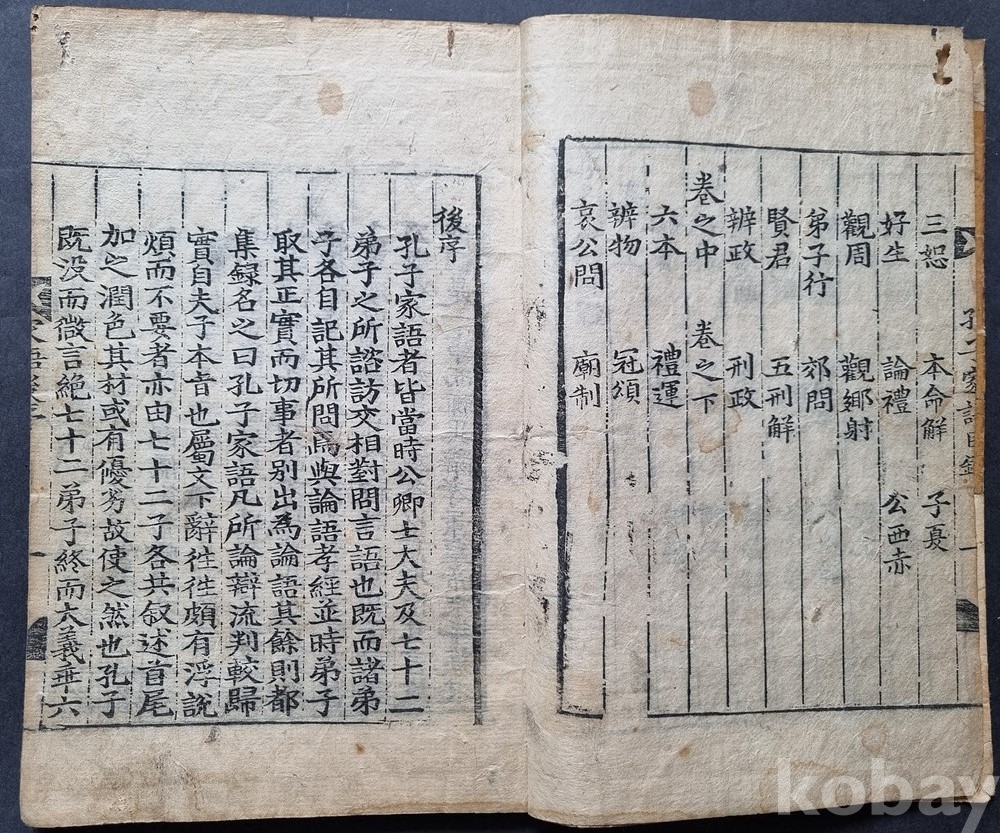 三恕 本命解 子夏
好生 論禮 公西赤
觀周 觀鄉射
弟子行 郊問
賢君 五刑解
辨政 刑政
卷之中 卷之下
六本 禮運
辨物 冠頌
哀公問 廟制
後序
孔子家語者皆當時公卿士大夫及七十二
弟子之所諮訪交相對問言語也既而諸弟
子各自記其所問焉與論語孝經並時弟子
取其正實而切事者别出為論語其餘則都
集録名之曰孔子家語凡所論辯流判較歸
實自夫子本旨也屬文下辭徃徃頗有浮說
煩而不要者亦由七十二子各共叙述首尾
加之潤色其材或有優劣故使之然也孔子
既没而微言絶七十二弟子終而大義乖六
kobay